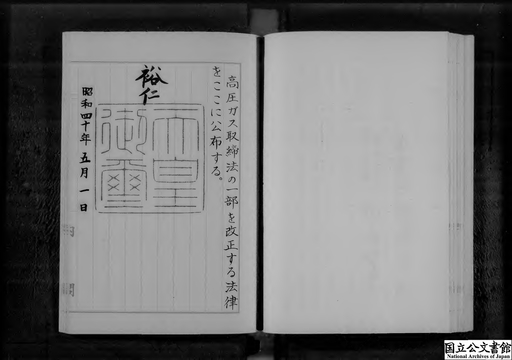 高圧ガス取締法の一部を改正する法律
をここに公布する。
裕仁
天皇
御璽
昭和四十年五月一日
国立公文書館
National Archives of Japan